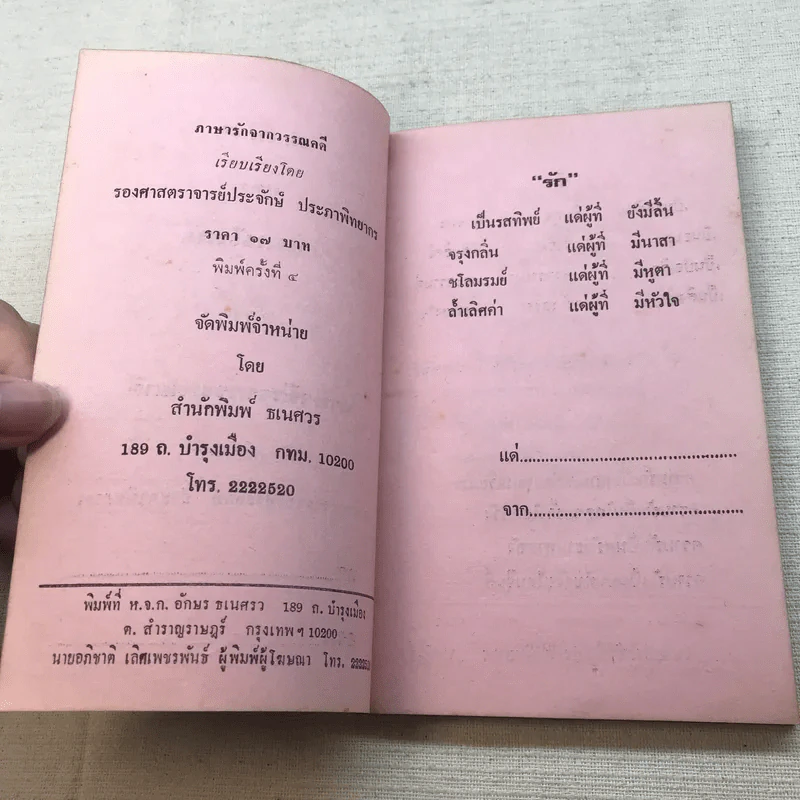 ภาษารักจากวรรณคดี
เรียบเรียงโดย
รองศาสตราจารย์ประจักษ์ ประภาพิทยากร
ราคา ๑๗ บาท
พิมพ์ครั้งที่ ๔
จัดพิมพ์จำหน่าย
โดย
สำนักพิมพ์ ธเนศวร
189 ถ. บำรุงเมือง กทม. 10200
โทร. 2222520
พิมพ์ที่ ห.จ.ก. อักษร ธเนศรว 189 ถ. บำรุงเมือง
ต. สำราญราษฎร์ กรุงเทพ ฯ 10200
นายอภิชาติ เลิศเพชรพันธ์ ผู้พิมพ์ผู้โฆษณา โทร.
"รัก"
เป็นรสทิพย์ แด่ผู้ที่ ยังมีลิ้น
จรุงกลิ่น แด่ผู้ที่ มีนาสา
ชโลมรมย์ แด่ผู้ที่ มีหูตา
ล้ำเลิศค่า แด่ผู้ที่ มีหัวใจ
แด่..............................................
จาก..............................................